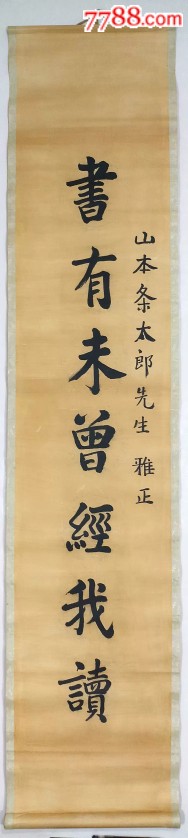 7788.com
山本条太郎先生 雅正
書有未曾經我讀